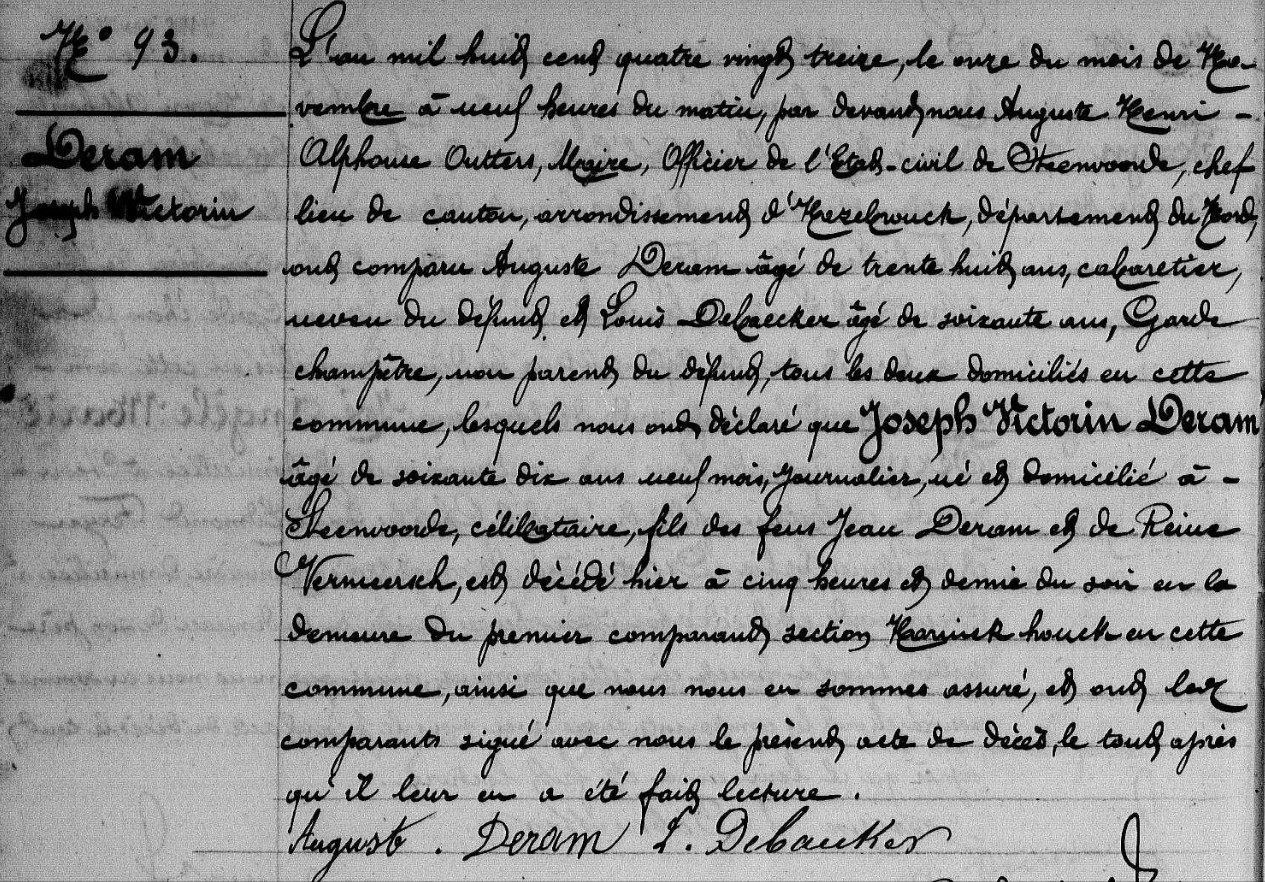 N° 93.
Deram
Joseph Victorin
L'an mil huit cent quatre vingt treize, le onze du mois de No-
vembre à neuf heures du matin, par devant nous Auguste Henri -
Alphonse Outters, Maire, Officier de l'Etat-civil de Steenvoorde, chef
lieu de canton, arrondissement d'Hazebrouck, département du Nord,
ont comparu Auguste Deram âgé de trente huit ans, cabaretier,
neveu du défunt et Louis Debaecker âgé de soixante ans, Garde
champêtre, non parent du défunt, tous les deux domiciliés en cette
commune, lesquels nous ont déclaré que Joseph Victorin Deram
âgé de soixante dix ans neuf mois, Journalier, né et domicilié à -
Steenvoorde, célibataire, fils des feus Jean Deram et de Reine
Vermeersch, est décédé hier à cinq heures et demie du soir en la
demeure du premier comparant, section houck en cette
commune, ainsi que nous nous en sommes assuré, et ont les
comparants signé avec nous le présent acte de décès, le tout après
qu'il leur en a été fait lecture.
Auguste . Deram L. Debaecker